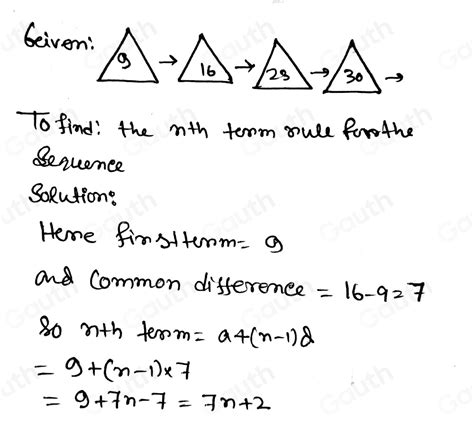 Given: 9 → 16 → 23 → 30 →
To find: the nth term rule for the
Sequence
Solution:
Here first term = 9
and Common difference = 16-9=7
So nth term = a+(n-1)d
= 9+(n-1)×7
= 9+7n-7 = 7n+2
Gauth